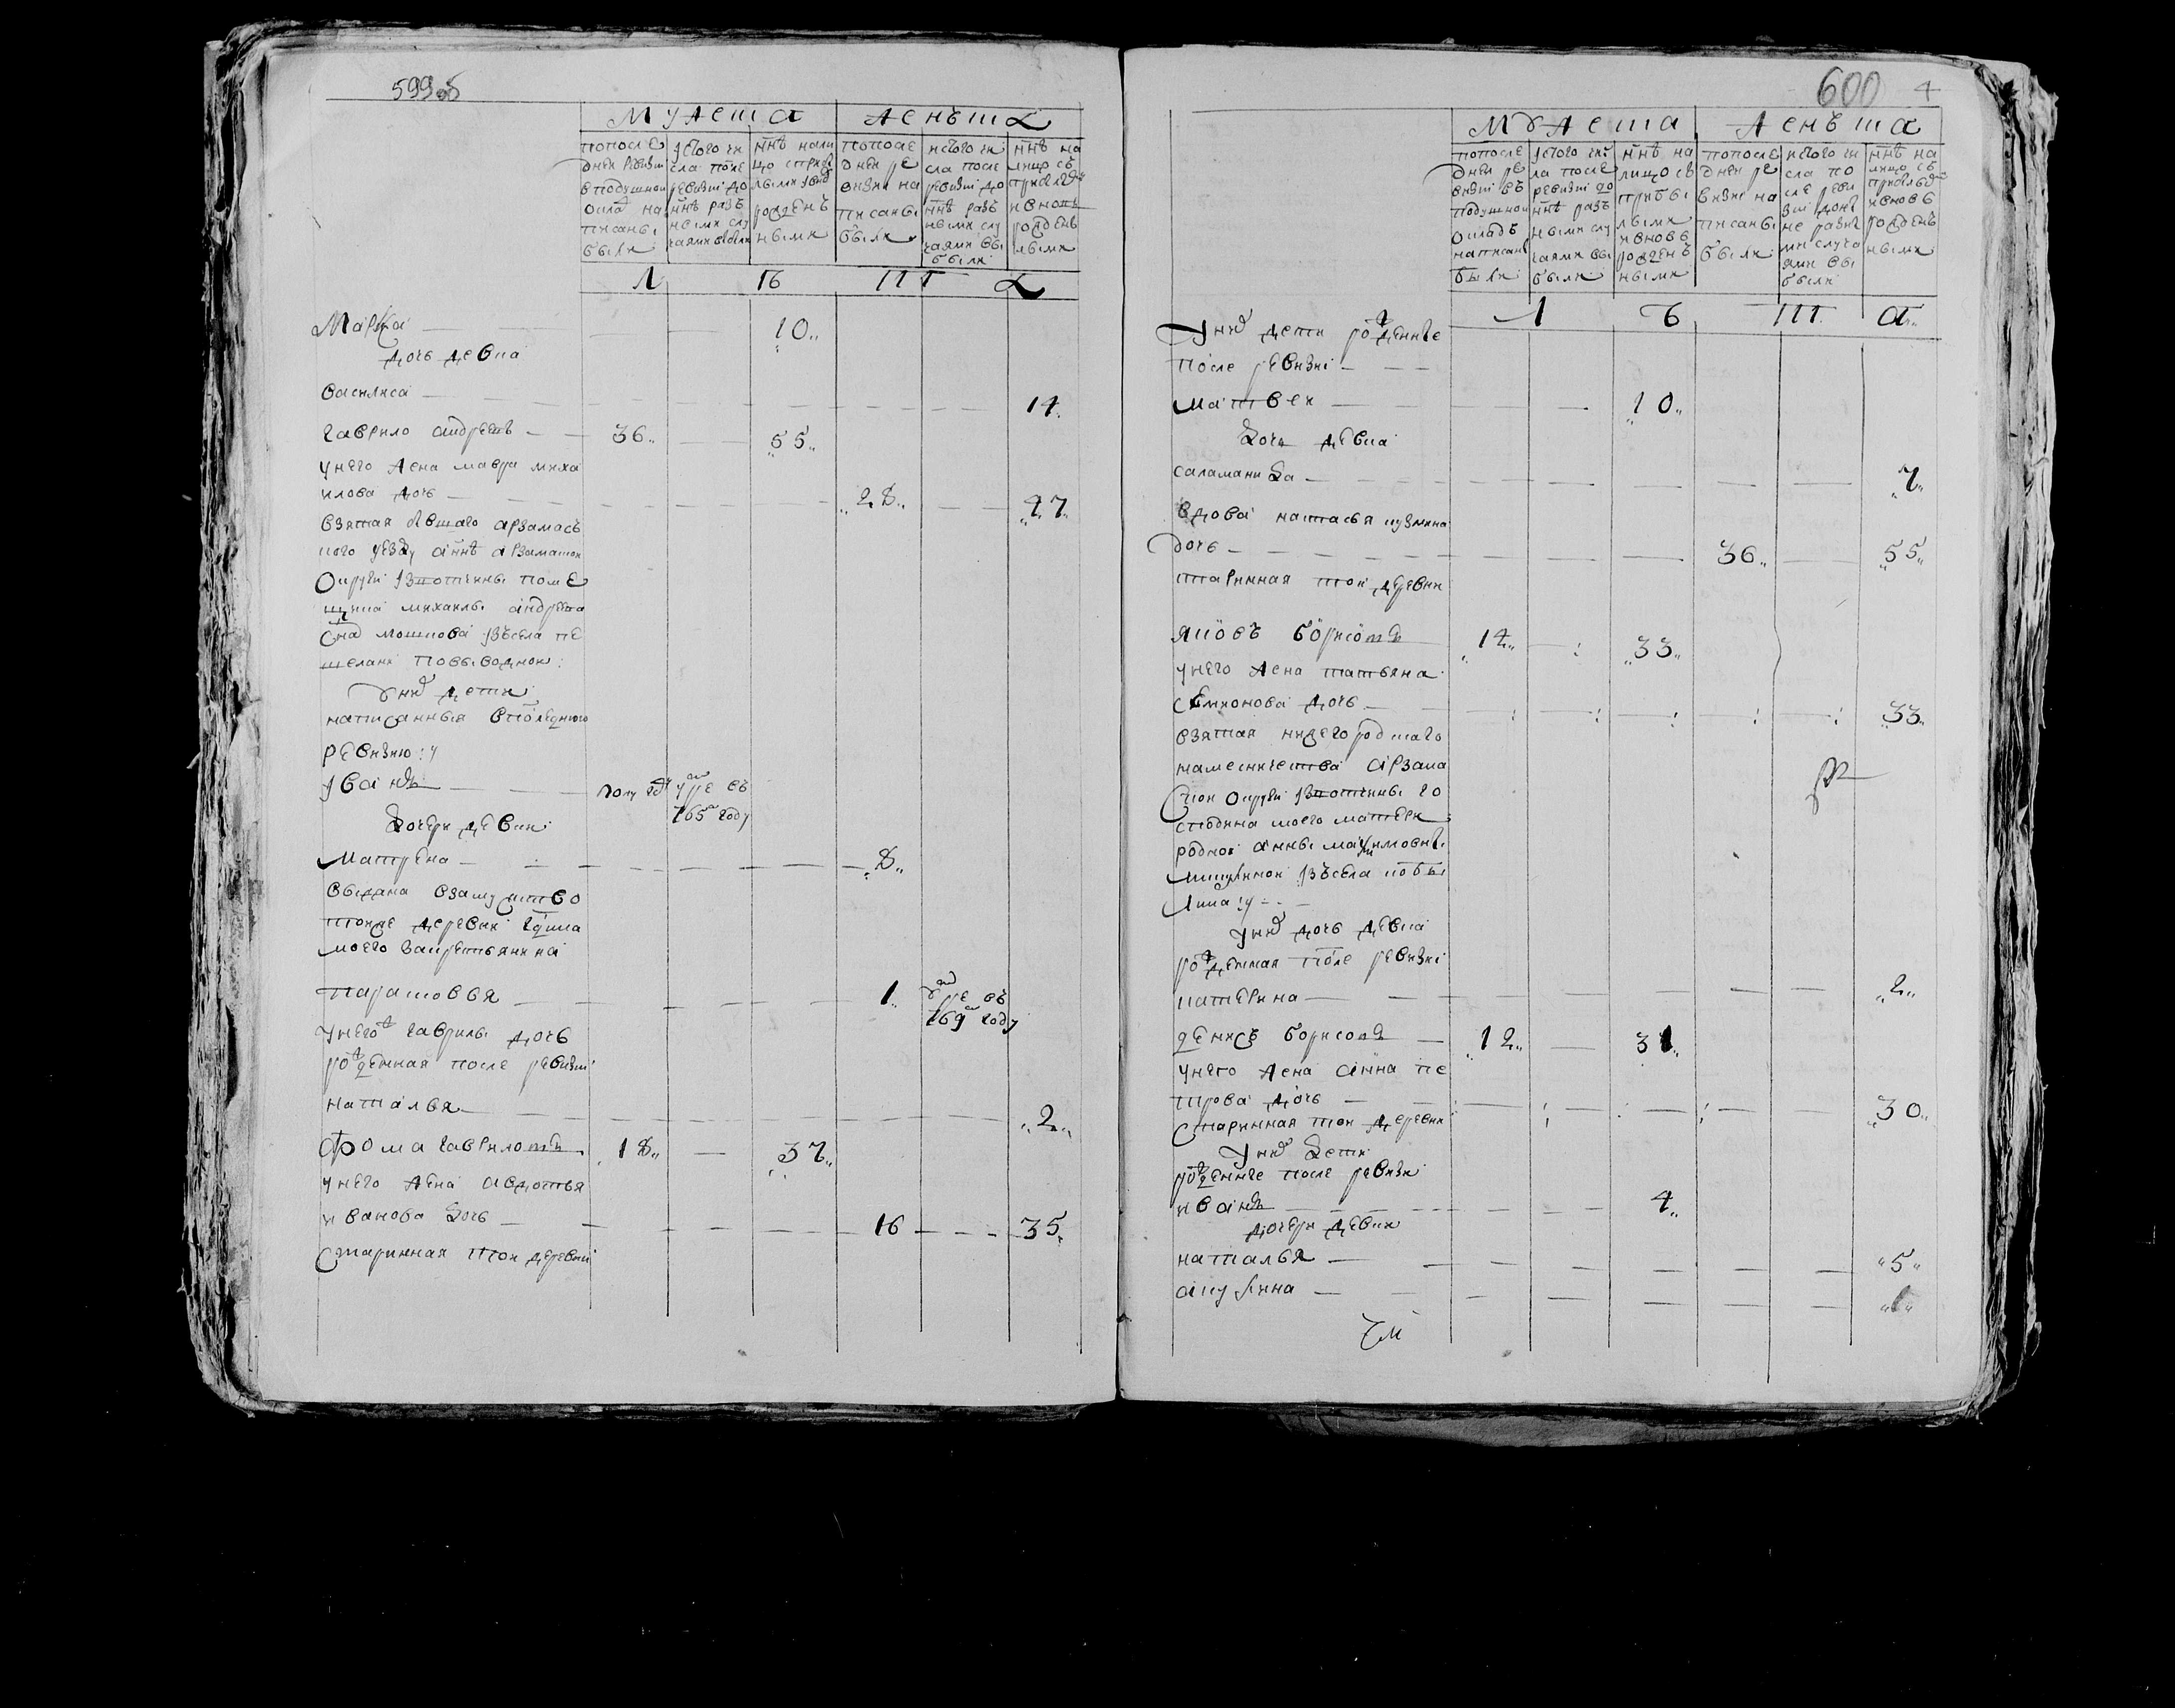 599об
мужеска
женъска
попосле
дней ревизи
в подушной
оклад на
писаны
были
ис того чи
сла после
ревизи до
ннѣ разъ
ными слу
чаями выбыли
ннѣ нали
цо с прибы
лыми
рожденъ
ными
попосле
дней ре
визи на
писаны
были
ис того чи
сла после
ревизи до
ннѣ разъ
ными слу
чаями вы
были
ннѣ на
лицо съ
прибылы
и вновь
рожденъ
ными
Марка 10
дочь девка
василиса 14
гаврило андреевъ 36 55
у него жена мавра миха
илова дочь 28 47
взятая бывшаго арзамасъ
кого уезду а ннѣ арзамаской
округи из вотчины поме
щика михаилы андреева
сна мошкова изъ села пе
шелани по выводной
у них дети
написанныя в последнюю
ревизию
иванъ полу году умре въ
765 году
дочери девки
Матрена 8
выдана в замужство
той же деревни гдна
моего за крестьянина
парасковья 1 умре въ
769 году
у него гаврилы дочь
рожденная после ревизи
наталья 2
Фома гавриловъ 18 37
у него жена авдотья
иванова дочь 16 35
старинная той деревни
600 4
мужеска
женъска
попосле
дней ре
визи въ
подушной
окладъ
написаны
были
ис того чи
ла после
ревизи до
ннѣ разъ
ными слу
чаями вы
были
ннѣ на
лицо съ
прибы
лыми
и вновь
рожденъ
ными
попосле
дней ре
визи на
писаны
были
ис того чи
сла по
сле реви
зи доны
не разны
ми случа
ями вы
были
ннѣ на
лицо съ
прибылы
и вновь
рожденъ
ными
У них дети рожденные
после ревизи
матвей 10
дочь девка
саламанида 7
вдова настасья кузмина
дочь 36 55
старинная той деревни
яковъ борисовъ 14 33
у него жена татьяна
семионова дочь 33
взятая нижегородскаго
наместничества арзама
ской округи из вотчины го
сподина моего матери
родной анны максимовны
изъ села новы
лика
у них дочь девка
рожденная после ревизи
катерина 2
денисъ борисовъ 12 31
у него жена анна пе
трова дочь 30
старинная той деревни
у них дети
рожденные после ревизи
иванъ 4
дочери девки
наталья 5
акулина 1